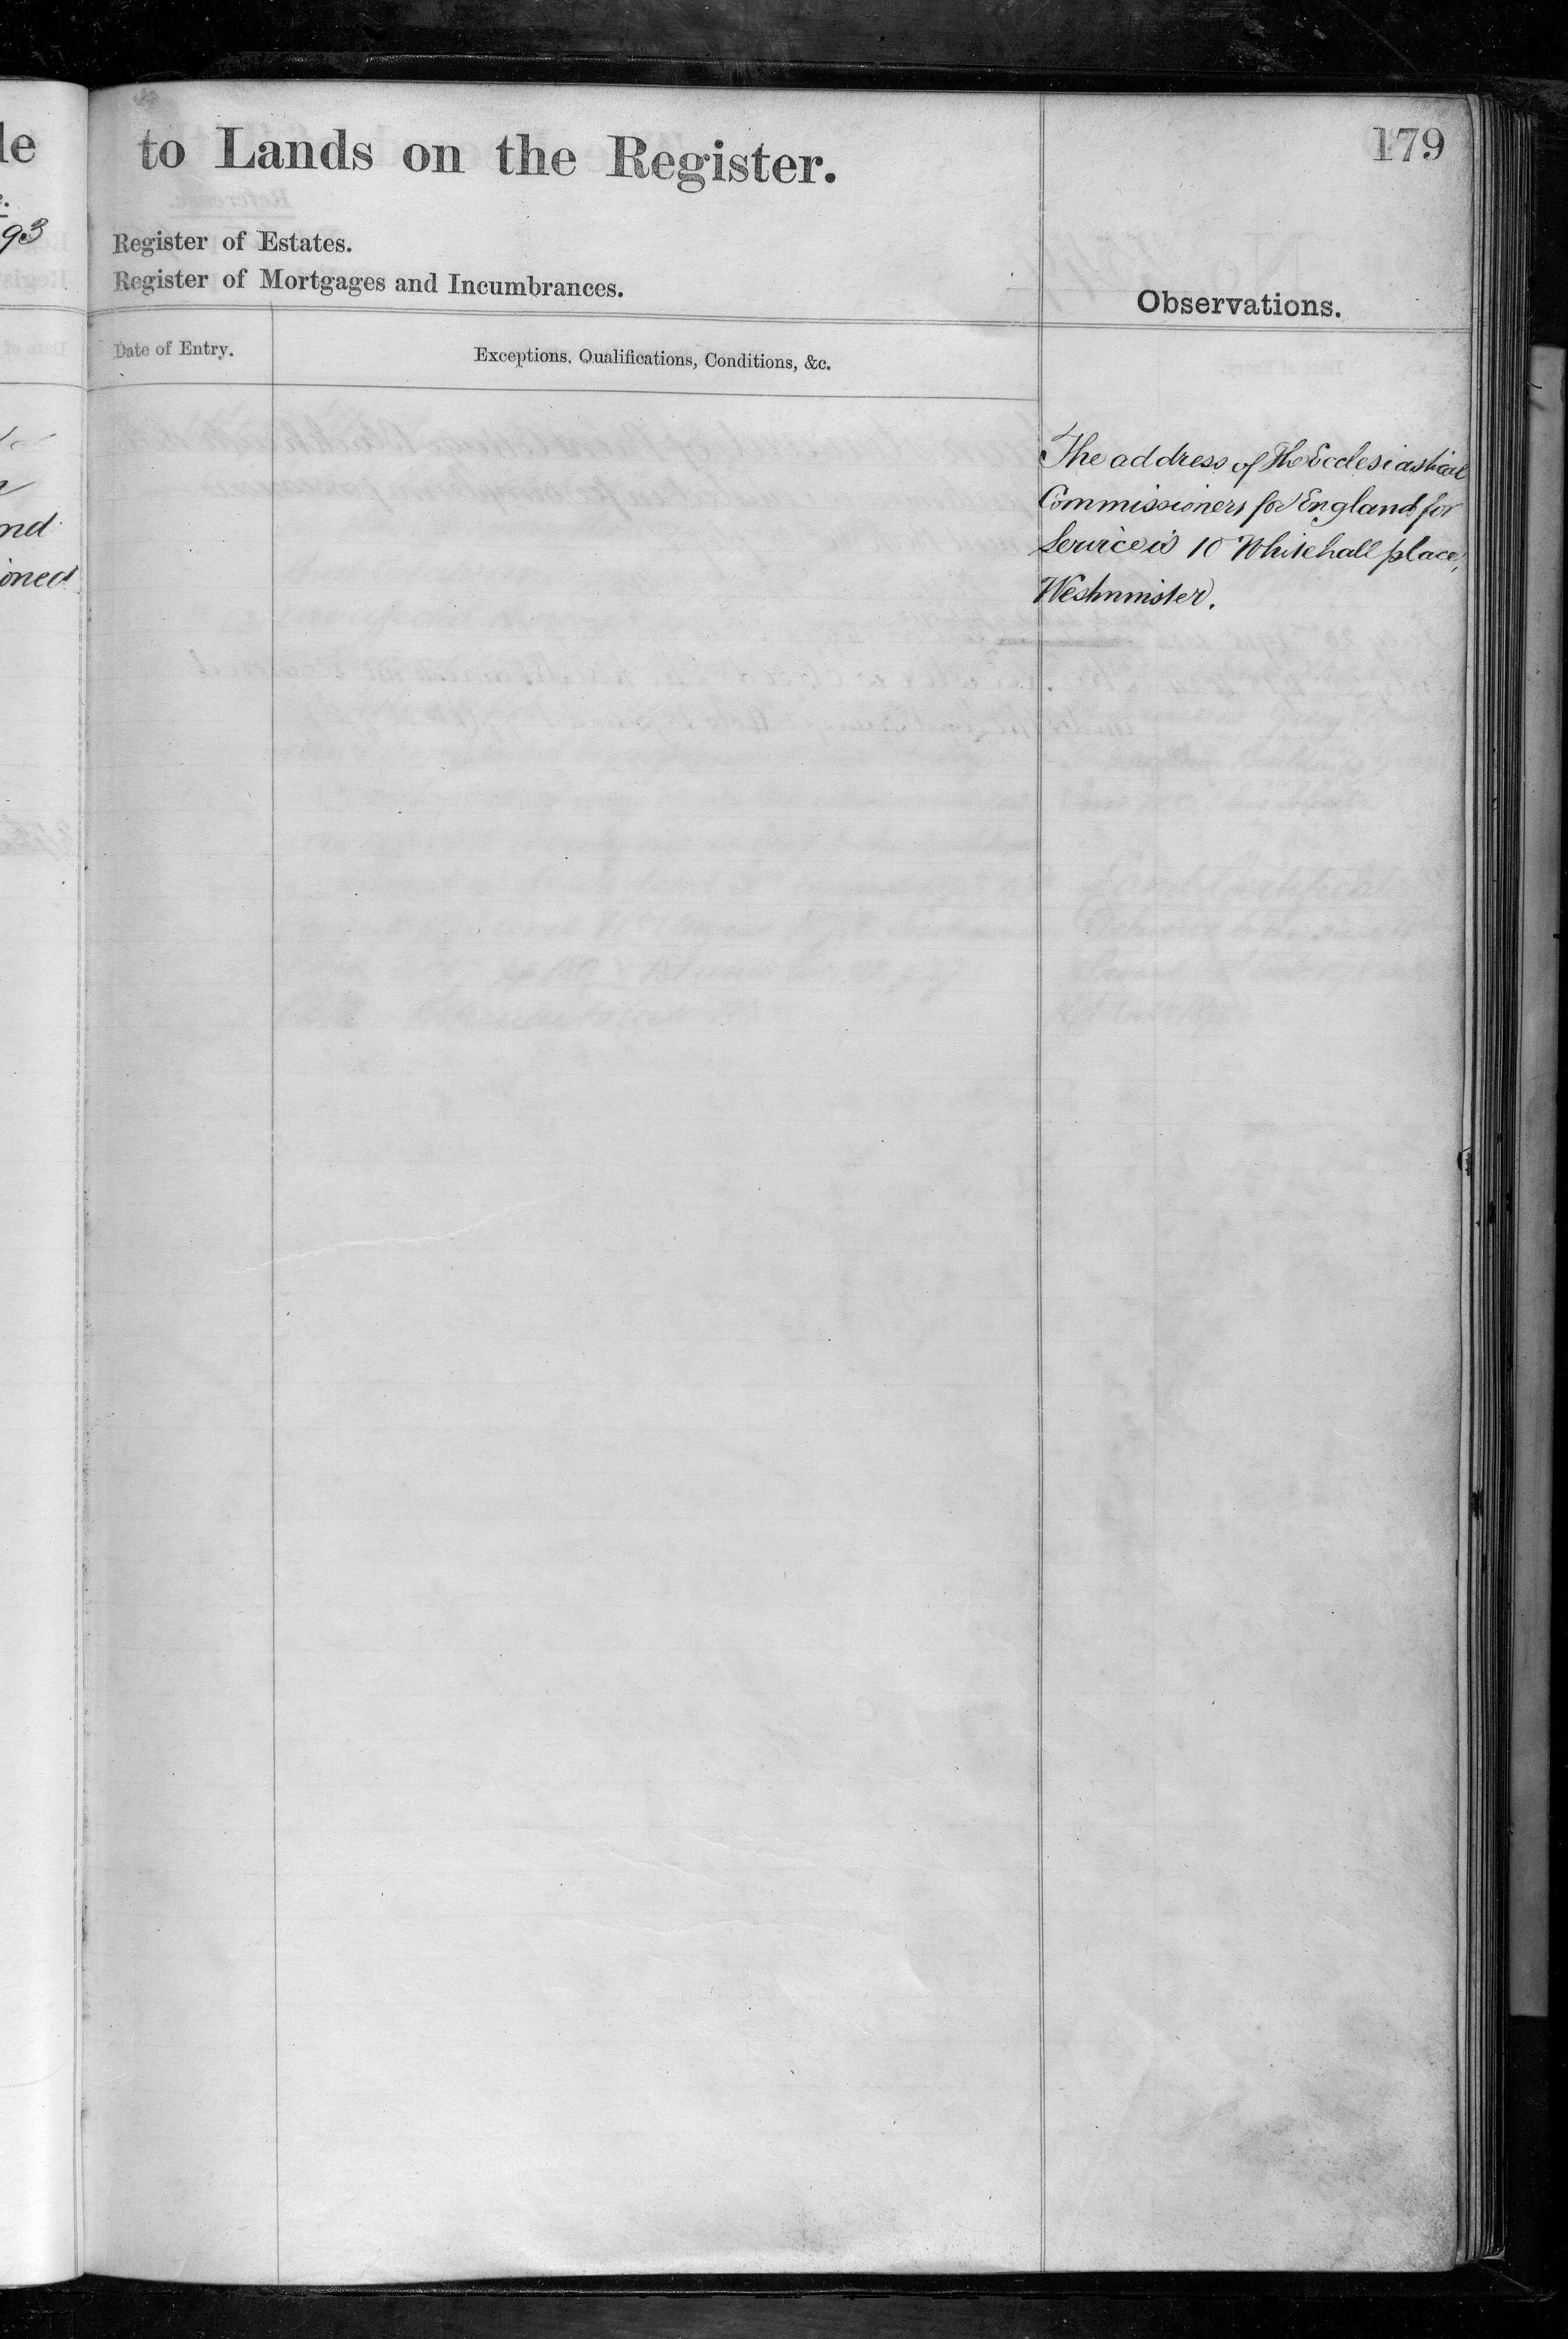 le
93
nd
ioned
179
to Lands on the Register.
Register of Estates.
Register of Mortgages and Incumbrances.
Observations.
Date of Entry.
Exceptions, Qualifications, Conditions, &c.
The address of The Ecclesiastical
Commissioners for England for
Service is 10 Whitehall place,
Westminster.